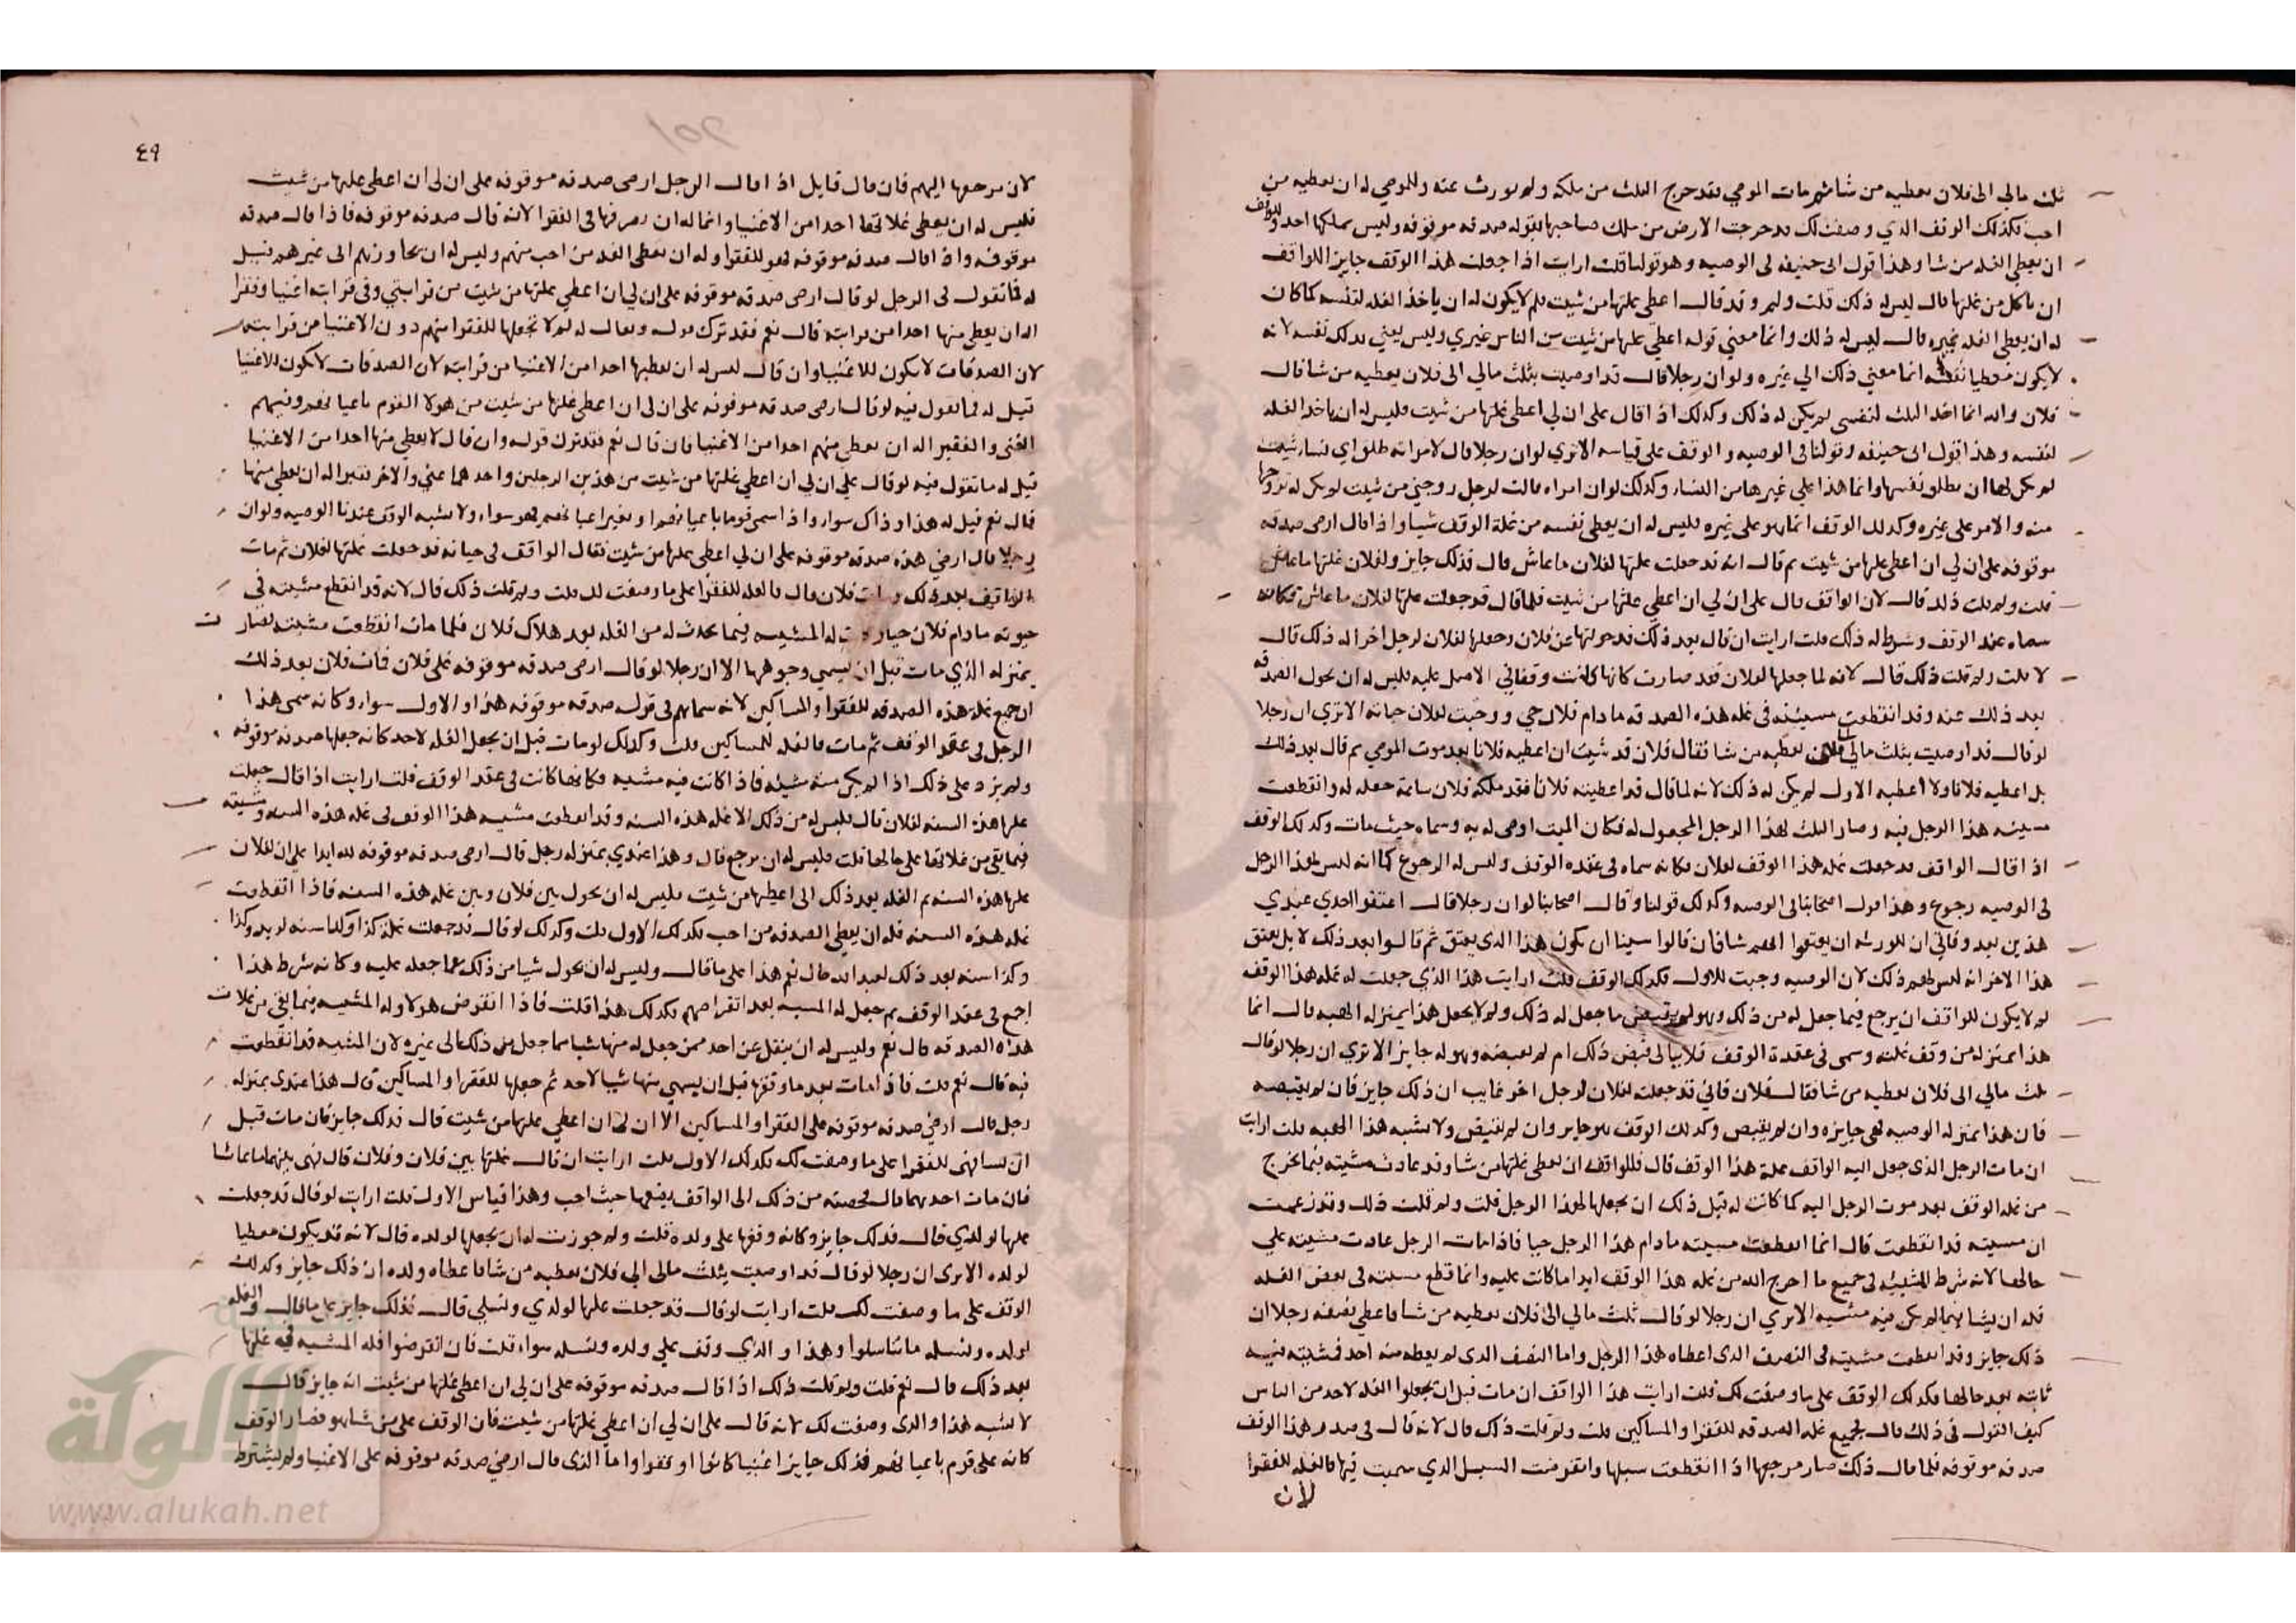 ثلث مالي الى فلان يعطيه من شا ثم مات الموصي فقد خرج الثلث من ملكه ولم يورث عنه وللموصي له ان يعطيه من
احب فكذلك الوقف الذي وصفت لك قد خرجت الارض من ملك صاحبها بقوله صدقه موقوفه وليس يملكها احد وللواقف
ان يعطي الغله من شا وهذا قول ابي حنيفه في الوصيه وهو قولنا قلت ارايت اذا جعلت هذا الوقف جايز اللواقف
ان ياكل من غلتها قال ليس له ذلك قلت ولم وقد قال اعطي غلتها من شيت فلم لا يكون له ان ياخذ الغله لنفسه كما كان
له ان يعطي الغله غيره قال ليس له ذلك وانما معني قوله اعطي غلتها من شيت من الناس غيري وليس يعني بذلك نفسه لانه
لا يكون معطيا نفسه انما معني ذلك الي غيره ولو ان رجلا قال قد اوصيت بثلث مالي الى فلان يعطيه من شا فقال
فلان والله انما اخذ الثلث لنفسي لم يكن له ذلك وكذلك اذا قال على ان لي اعطي غلتها من شيت فليس له ان ياخذ الغله
لنفسه وهذا قول ابي حنيفه وقولنا في الوصيه والوقف على قياسه الا تري لو ان رجلا قال لامراته طلق اي نساء شيت
لم يكن لها ان تطلق نفسها وانما هذا علي غيرها من النساء وكذلك لو ان امراه قالت لرجل زوجني من شيت لم يكن له تزوجها
منه والامر على غيره وكذلك الوقف انما هو على غيره فليس له ان يعطي نفسه من غلة الوقف شيا واذا قال ارضي صدقه
موقوفه على ان لي ان اعطي غلتها من شيت ثم قال انه قد جعلت غلتها لفلان ما عاش قال فذلك جايز ولفلان غلتها ما عاش
قلت ولم قلت ذلك قال لان الواقف قال على ان لي ان اعطي غلتها من شيت فلما قال قد جعلت غلتها لفلان ما عاش فكانه
سماه عند الوقف وشرط له ذلك قلت ارايت ان قال بعد ذلك قد حولتها عن فلان وجعلتها لفلان لرجل اخر اله ذلك قال
لا قلت ولم قلت ذلك قال لانه لما جعلها لفلان فقد صارت كانها كانت وقفا في الاصل عليه فليس له ان يحول الصدقه
بعد ذلك عنه وقد انقطعت مشيئته في غله هذه الصدقه ما دام فلان حي ووجبت لفلان حياته الا تري ان رجلا
لو قال قد اوصيت بثلث مالي الى فلان يعطيه من شا فقال فلان قد شيت ان اعطيه فلانا بعد موت الموصي ثم قال بعد ذلك
بل اعطيه فلانا ولا اعطيه الاول لم يكن له ذلك لانه لما قال قد اعطيته فلانا فقد ملكه فلان ساعة جعله له وانقطعت
مشيئه هذا الرجل فيه وصار الثلث لهذا الرجل المجعول له فكان الميت اوصى له به وسماه حيث مات وكذلك الوقف
اذا قال الواقف قد جعلت غله هذا الوقف لفلان فكانه سماه في عقده الوقف وليس له الرجوع كما انه ليس لهذا الرجل
في الوصيه رجوع وهذا قول اصحابنا في الوصيه وكذلك قولنا وقال اصحابنا لو ان رجلا قال اعتقوا احدي عبدي
هذين بعد وفاتي ان للورثه ان يعتقوا ايهم شا فان قالوا شينا ان يكون هذا الذي يعتق ثم قالوا بعد ذلك لا بل يعتق
هذا الاخر انه ليس لهم ذلك لان الوصيه وجبت للاول فكذلك الوقف قلت ارايت هذا الذي جعلت له غله هذا الوقف
لم لا يكون للواقف ان يرجع فيما جعل له من ذلك وهو لم يقبض ما جعل له ذلك ولم لا يجعل هذا بمنزله الهبه قال انما
هذا بمنزله من وقف غلته وسمى في عقدة الوقف فلا يبالي قبض ذلك ام لم يقبضه وهو له جايز الا تري ان رجلا لو قال
ثلث مالي الى فلان يعطيه من شا فقال فلان فاني قد جعلته لفلان لرجل اخر غايب ان ذلك جايز فان لم يقبضه
فان هذا بمنزله الوصيه فهي جايزه وان لم يقبض وكذلك الوقف هو جايز وان لم يقبض ولا يشبه هذا الهبه قلت ارايت
ان مات الرجل الذي جعل اليه الواقف غلة هذا الوقف قال فللواقف ان يعطي غلتها من شا وقد عادت مشيته فيما يخرج
من غله الوقف بعد موت الرجل اليه كما كانت له قبل ذلك ان يجعلها لهذا الرجل قلت ولم قلت ذلك وقد زعمت
ان مشيته قد انقطعت قال انما انقطعت مشيته ما دام هذا الرجل حيا فاذا مات الرجل عادت مشيته علي
حالها لانه شرط المشيئه في جميع ما اخرج الله من غله هذا الوقف ابدا ما كانت عليه وانما قطع مشيته في بعض الغله
فله ان يشا فيما لم يكن فيه مشيه الا تري ان رجلا لو قال ثلث مالي الى فلان يعطيه من شا فاعطي نصفه رجلا ان
ذلك جايز وقد انقطعت مشيته في النصف الذي اعطاه هذا الرجل واما النصف الذي لم يعطه منه احد فمشيته فيه
ثابته بعد حالها فكذلك الوقف على ما وصفت لك قلت ارايت هذا الواقف ان مات قبل ان يجعلوا الغله لاحد من الناس
كيف القول في ذلك قال لجميع غله الصدقه للفقرا والمساكين قلت ولم قلت ذلك قال لانه قال في صدر هذا الوقف
صدقه موقوفه فلما قال ذلك صار مرجعها اذا انقطعت سبلها وانقرضت السبل الذي سميت فيها فالغله للفقرا
لان
٤٩
لان مرجعها اليهم فان قال قايل اذا قال الرجل ارضي صدقه موقوفه على ان لي ان اعطي غلتها من شيت
فليس له ان يعطي غلاتها احدا من الاغنيا وانما له ان يصرفها في الفقرا لانه قال صدقه موقوفه فاذا قال صدقه
موقوفه واذا قال صدقه موقوفه فهو للفقرا وله ان يعطي الغله من احب منهم وليس له ان يجاوزهم الى غيرهم قيل
له فما تقول في الرجل لو قال ارضي صدقه موقوفه على ان لي ان اعطي غلتها من شيت من قرابتي وفي قرابته اغنيا وفقرا
اله ان يعطي منها احدا من قرابته قال نعم فقد ترك قوله ويقال له لم لا تجعلها للفقرا منهم دون الاغنيا من قرابته
لان الصدقات لا يكون للاغنيا وان قال ليس له ان يعطيها احدا من الاغنيا من قرابته لان الصدقات لا يكون للاغنيا
قيل له فما تقول فيه لو قال ارضي صدقه موقوفه على ان لي ان اعطي غلتها من شيت من هولا القوم باعيانهم وفيهم
الغني والفقير اله ان يعطي منهم احدا من الاغنيا فان قال نعم فقد ترك قوله وان قال لا يعطي منها احدا من الاغنيا
قيل له ما تقول فيه لو قال علي ان لي ان اعطي غلتها من شيت من هذين الرجلين واحدهما غني والاخر فقير اله ان يعطي منها
قال نعم قيل له هذا وذاك سواء واذا سمى قوما باعيانهم او بغير اعيانهم فهو سواء ولا يشبه الوقف عندنا الوصيه ولو ان
رجلا قال ارضي هذه صدقه موقوفه على ان لي اعطي غلتها من شيت فقال الواقف في حياته قد جعلت غلتها لفلان ثم مات
الواقف بعد ذلك ومات فلان قال فالغله للفقرا على ما وصفت لك قلت ولم قلت ذلك قال لانه قد انقطع مشيته في
حيوته ما دام فلان حيا له المشيه فيما يحدث له من الغله بعد هلاك فلان فلما مات انقطعت مشيته فصار
بمنزله الذي مات قبل ان يسمي وجوهها الا ان رجلا لو قال ارضي صدقه موقوفه على فلان فمات فلان بعد ذلك
ان جميع غلة هذه الصدقه للفقرا والمساكين لانه سماهم في قوله صدقه موقوفه هذا والاول سواء وكانه سمى هذا
الرجل في عقد الوقف ثم مات فالغله للمساكين قلت وكذلك لو مات قبل ان يجعل الغله لاحد كانه جعلها صدقه موقوفه
ولم يزد على ذلك اذا لم يكن منه مشيئه فاذا كانت فيه مشيه فكانها كانت في عقد الوقف قلت ارايت اذا قال جعلت
غلتها هذه السنه لفلان قال فليس له من ذلك الا غله هذه السنه وقد انقطعت مشيه هذا الواقف في غله هذه السنه ومشيته
فيما بقي من غلاتها على حالها قلت فليس له ان يرجع قال وهذا عندي بمنزله رجل قال ارضي صدقه موقوفه لله ابدا علي ان لفلان
غلتها هذه السنه ثم الغله بعد ذلك الي اعطيها من شيت فليس له ان يحول بين فلان وبين غله هذه السنه فاذا انقطعت
غله هذه السنه فله ان يعطي الصدقه من احب فكذلك الاول قلت وكذلك لو قال قد جعلت غلة كذا وكذا سنه لزيد وكذا
وكذا سنه بعد ذلك لعبد الله قال نعم هذا على ما قال وليس له ان يحول شيا من ذلك عما جعله عليه وكانه شرط هذا
اجمع في عقد الوقف ثم جعل له المشيه بعد انقراضهم فكذلك هذا قلت فاذا انقرض هولا وله المشيه فيما بقي من غلات
هذه الصدقه قال نعم وليس له ان ينقل عن احد ممن جعل له منها شيا مما جعل من ذلك الى غيره لان المشيه قد انقطعت
فيه قال نعم قلت فاذا مات بعد ما وقفها قبل ان يسمي منها شيا لاحد ثم جعلها للفقرا والمساكين قال هذا عندي بمنزله
رجل قال ارضي صدقه موقوفه على الفقرا والمساكين الا ان لي ان اعطي غلتها من شيت قال فذلك جايز فان مات قبل
ان للفقرا على ما وصفت لك فكذلك الاول قلت ارايت ان قال غلتها بين فلان وفلان قال فهي بينهما ما عاشا
فان مات احدهما قال فحصته من ذلك الى الواقف يضعها حيث احب وهذا قياس الاول قلت ارايت لو قال قد جعلت
غلتها لولدي قال فذلك جايز وكانه وقفها على ولده قلت ولم جوزت له ان يجعلها لولده قال لانه قد يكون معطيا
لولده الا تري ان رجلا لو قال قد اوصيت بثلث مالي الي فلان يعطيه من شا فاعطاه ولده ان ذلك جايز وكذلك
الوقف على ما وصفت لك قلت ارايت لو قال قد جعلت غلتها لولدي ونسلي قال فذلك جايز على ما قال والغله
لولده ونسله ما تناسلوا وهذا والذي وقف علي ولده ونسله سواء قلت فان انقرضوا فله المشيه في غلتها
بعد ذلك قال نعم قلت ولم قلت ذلك اذا قال صدقه موقوفه على ان لي ان اعطي غلتها من شيت انه جايز قال
لا يشبه هذا والذي وصفت لك لانه قال على ان لي ان اعطي غلتها من شيت فان الوقف على من شا هو فصار الوقف
كانه على قوم باعيانهم فذلك جايز اغنيا كانوا او فقرا واما الذي قال ارضي صدقه موقوفه على الاغنيا ولم يشترط
الألوكة
www.alukah.net